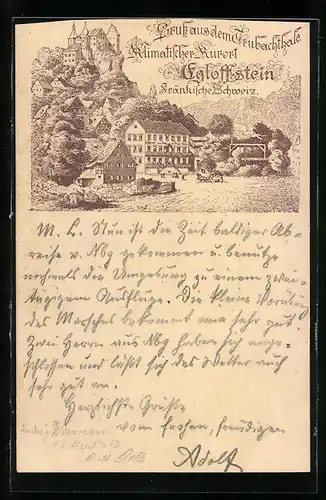 Gruß aus dem Trubachthale
Klimatischer Kurort
Egloffstein
Fränkische Schweiz.
M. L. Nun ist die Zeit baldiger Ab-
reise v. Nbg gekommen u. benutze
nochmals die Umgebung zu einem zwei-
tägigem Ausfluge. Die kleine
des Marsches bekommt uns sehr gut.
Zwei Herrn aus Nbg haben sich ange-
schlossen und läßt sich das Wetter auch
sehr gut an.
Herzlichste Grüße
vom frohen, freudigen
Adolf